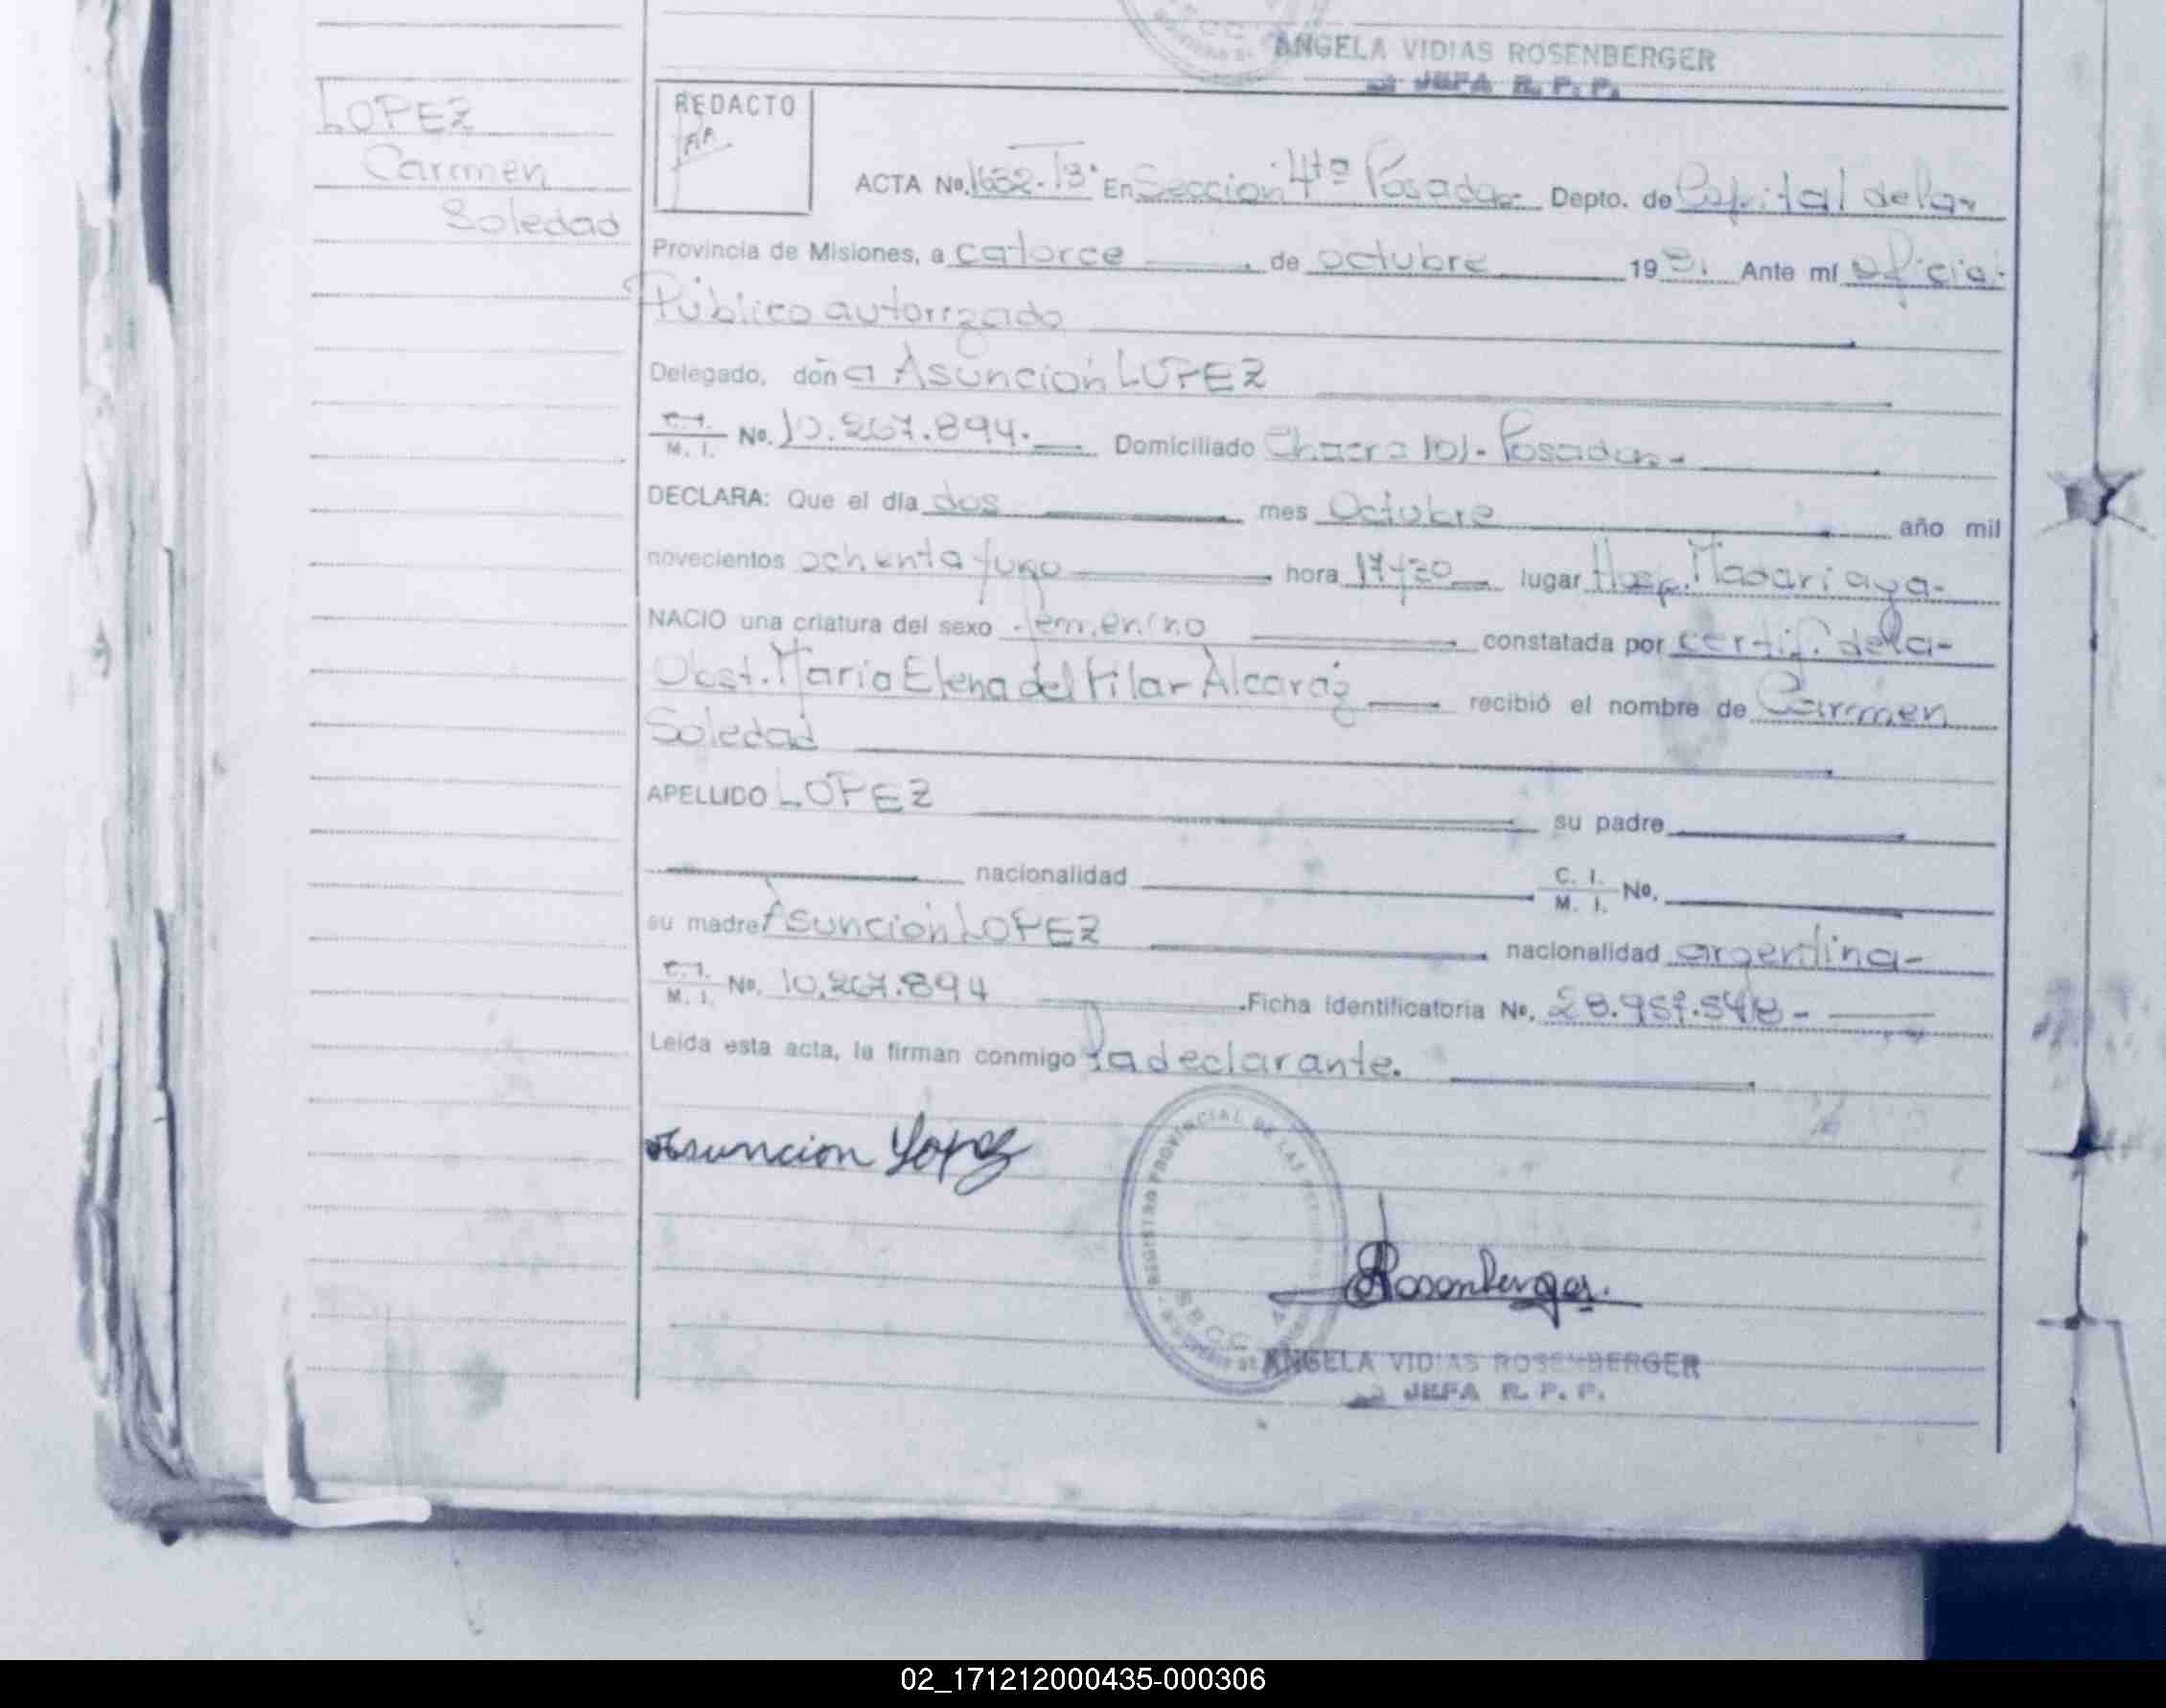 ANGELA VIDIAS ROSENBERGER
JEFA R. P. P.
LOPEZ
Carmen
Soledad
REDACTO
ACTA No. 1632-T3° En Sección 4ta Posadas Depto. de Capital de la
Provincia de Misiones, a catorce de octubre 1981 Ante mí oficial
Público autorizado
Delegado, doña Asunción LOPEZ
C. I. / M. I. No. 10.267.894. Domiciliado Chacra 101- Posadas-
DECLARA: Que el día dos mes Octubre año mil
novecientos ochenta y uno hora 17y20 lugar Hosp. Madariaga-
NACIO una criatura del sexo femenino constatada por certif. de la-
Obst. María Elena del Pilar Alcaráz recibió el nombre de Carmen
Soledad
APELLIDO LOPEZ su padre
nacionalidad C. I. / M. I. No.
su madre Asunción LOPEZ nacionalidad argentina-
C. I. / M. I. No. 10.267.894 Ficha Identificatoria No. 28.957.548-
Leída esta acta, la firman conmigo la declarante.
Asuncion Lopez
REGISTRO PROVINCIAL DE LAS
Rosenberger.
ANGELA VIDIAS ROSENBERGER
JEFA R. P. P.
02_171212000435-000306